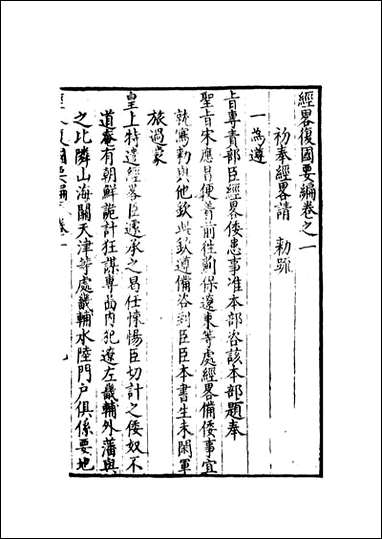 經畧復國要編卷之一
初奉經畧請 勅疏
一為遵
旨專責部臣經畧倭患事准本部咨該本部題奉
聖旨宋應昌便着前往薊保遼東等處經畧備倭事宜
就寫勅與他欽此欽遵備咨到臣臣本書生未閑軍
旅過蒙
皇上特遣經畧臣遽承之曷任悚惕臣切計之倭奴不
道奄有朝鮮詭計狂謀專啚内犯遼左畿輔外藩與
之比隣山海關天津等處畿輔水陸門戶俱係要地